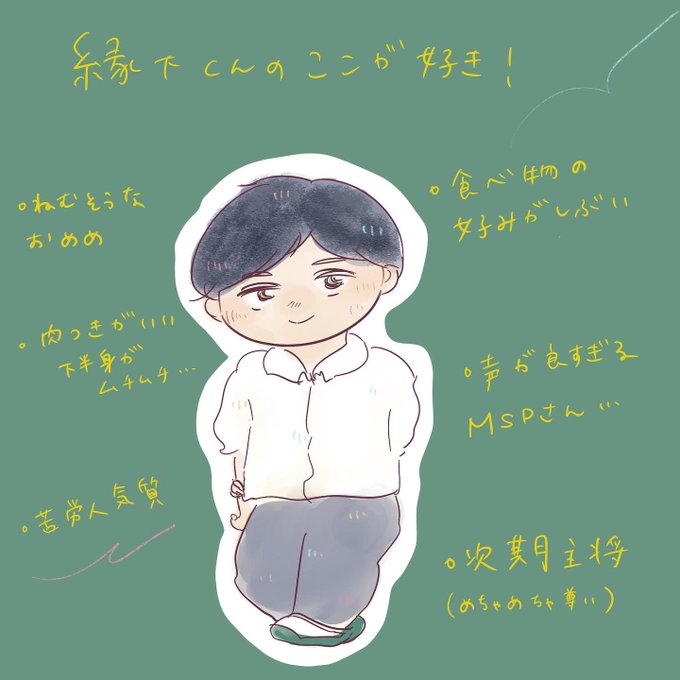 縁下くんのここが好き!
○ねむそうな
おめめ
○肉つきがいい
下半身が
ムチムチ...
○苦労人気質
○食べ物の
好みがしぶい
○声が良すぎる
MSPさん...
○次期主将
(めちゃめちゃ尊い)